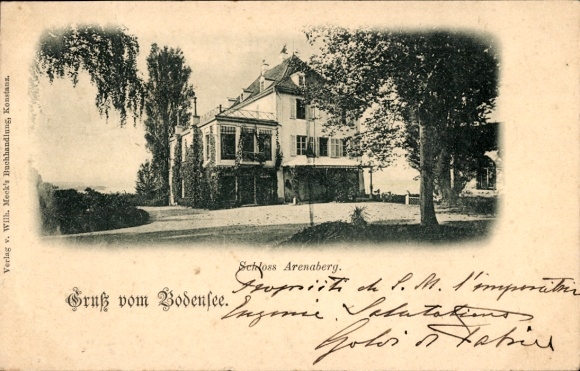 Verlag v. Wilh. Meck's Buchhandlung, Konstanz.
Schloss Arenaberg.
Gruß vom Bodensee.
Propriété de S. M. l'impératrice
Eugenie. Salutations